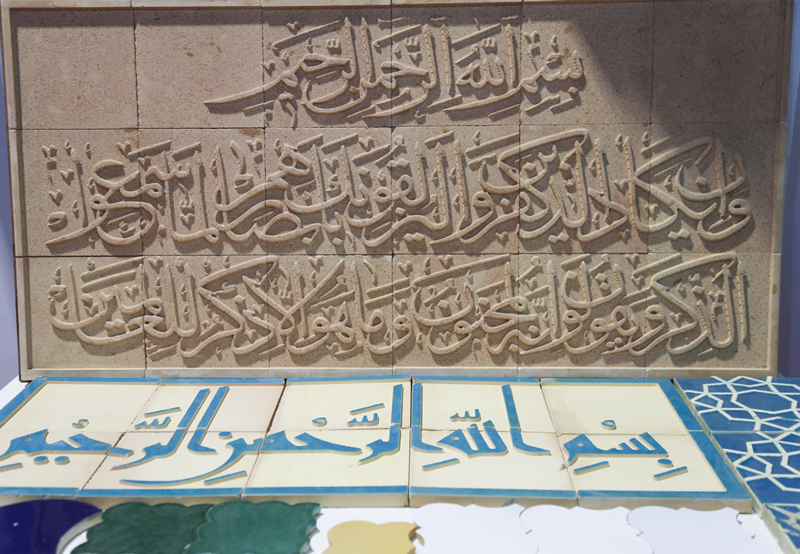 بِسْمِ اللَّهِ الرَّحْمَنِ الرَّحِيمِ
وَإِن يَكَادُ الَّذِينَ كَفَرُوا لَيُزْلِقُونَكَ بِأَبْصَارِهِمْ لَمَّا سَمِعُوا
الذِّكْرَ وَيَقُولُونَ إِنَّهُ لَمَجْنُونٌ وَمَا هُوَ إِلَّا ذِكْرٌ لِلْعَالَمِينَ
بِسْمِ اللَّهِ الرَّحْمَنِ الرَّحِيمِ